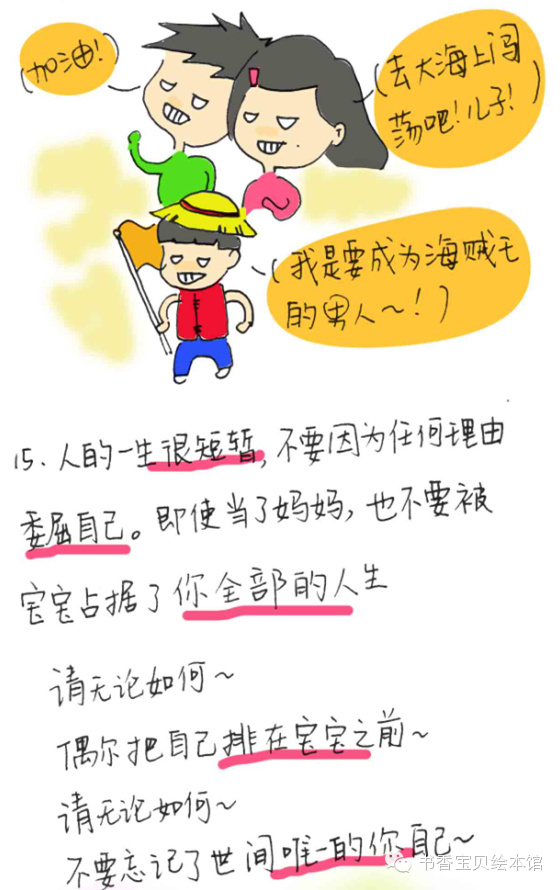 加油!
去大海上闯
荡吧!儿子!
我是要成为海贼王
的男人~!
15.人的一生很短暂,不要因为任何理由
委屈自己。即使当了妈妈,也不要被
宝宝占据了你全部的人生
请无论如何~
偶尔把自己排在宝宝之前~
请无论如何~
不要忘记了世间唯一的你自己~
书香宝贝绘本馆